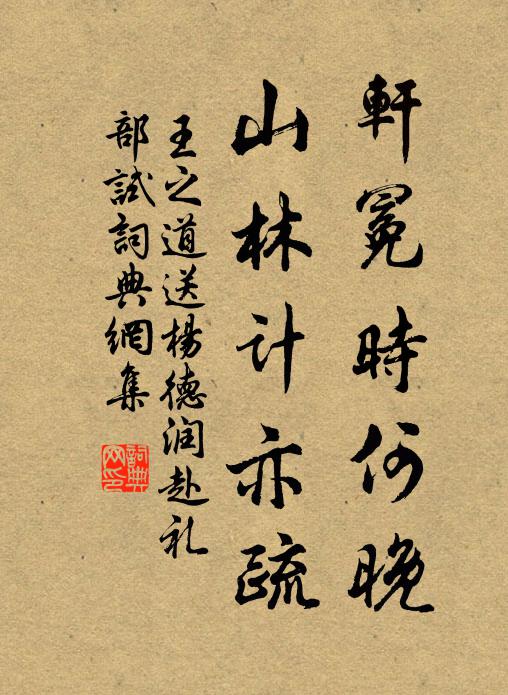 軒冕時何晚
山林计亦疏
王之道送楊德润赴礼
部試詞典網集
詞典
网印